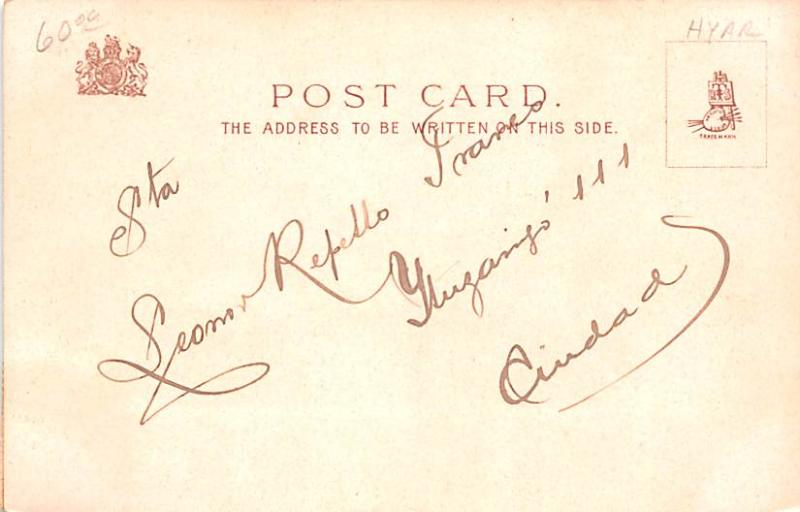 60.00
HYAR
POST CARD.
THE ADDRESS TO BE WRITTEN ON THIS SIDE.
TRADE MARK
Sta
Leonor Repetto Franco
Ytuzaingó 111
Ciudad